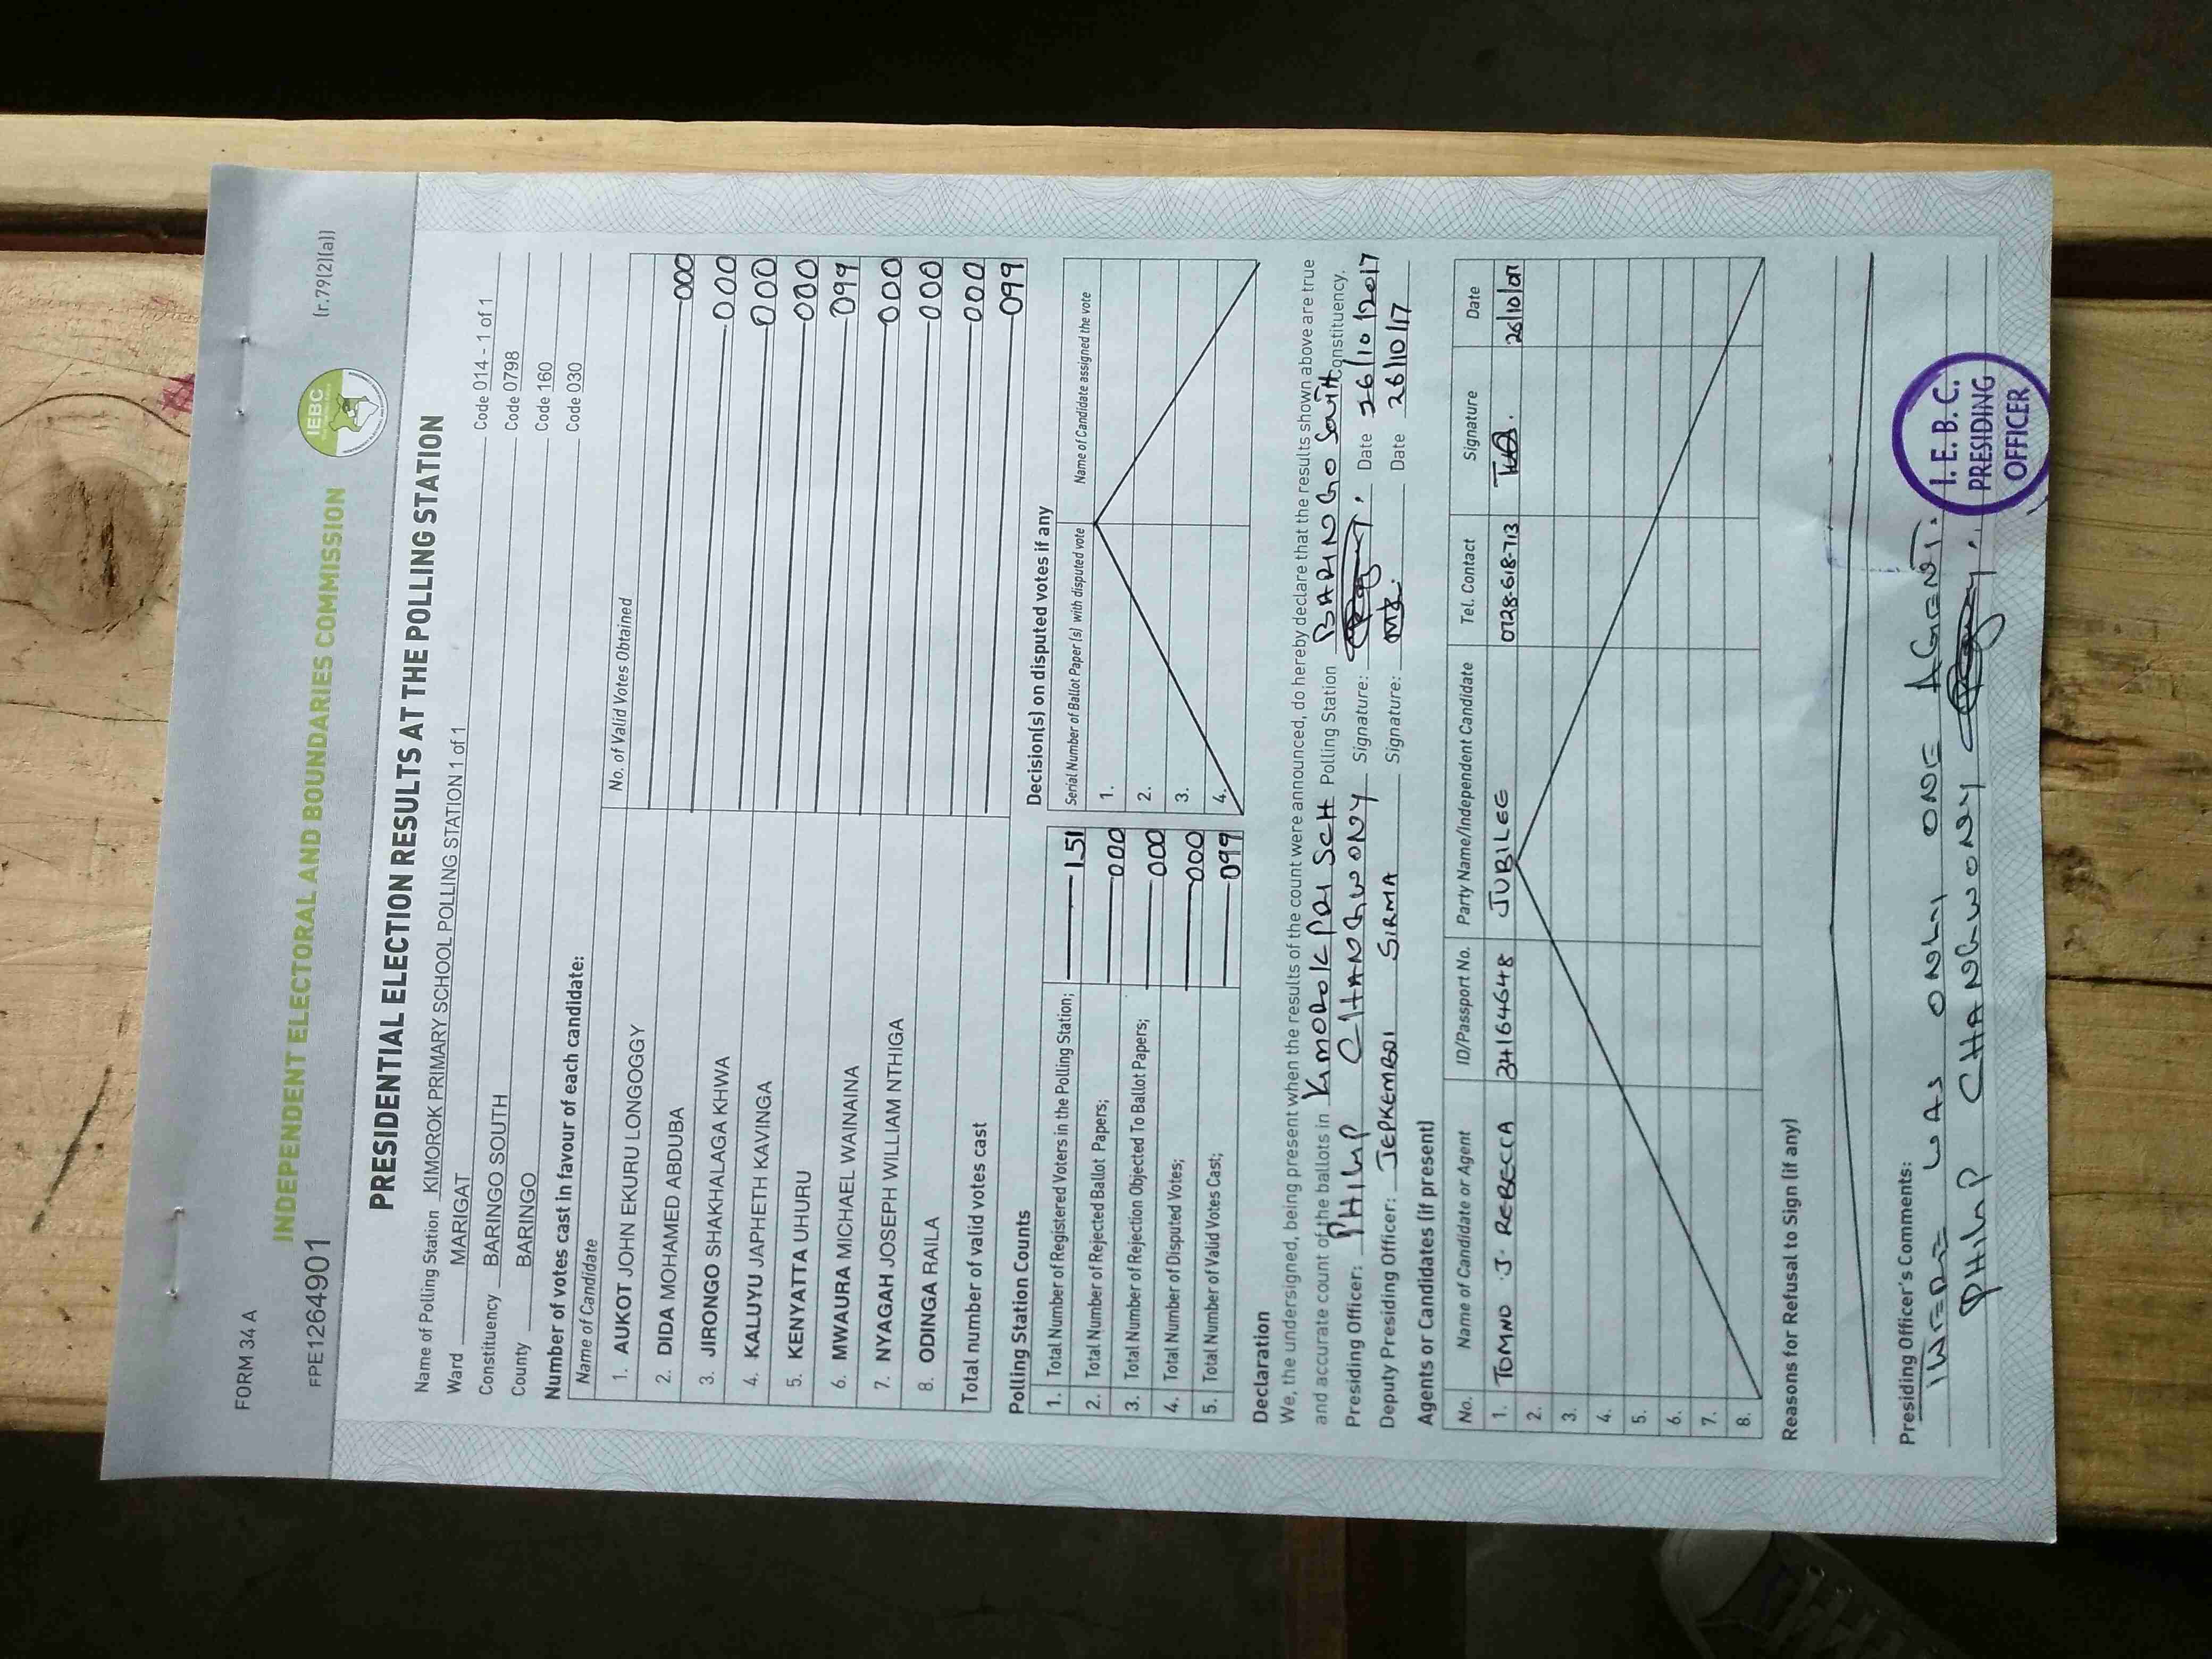 FORM 34 A
FPE1264901
INDEPENDENT ELECTORAL AND BOUNDARIES COMMISSION
IEBC
(r.79(2)(a))
PRESIDENTIAL ELECTION RESULTS AT THE POLLING STATION
Name of Polling Station KIMOROK PRIMARY SCHOOL POLLING STATION 1 of 1 Code 014 - 1 of 1
Ward MARIGAT Code 0798
Constituency BARINGO SOUTH Code 160
County BARINGO Code 030
Number of votes cast in favour of each candidate:
Name of Candidate No. of Valid Votes Obtained
1. AUKOT JOHN EKURU LONGOGGY 000
2. DIDA MOHAMED ABDUBA 000
3. JIRONGO SHAKHALAGA KHWA 000
4. KALUYU JAPHETH KAVINGA 000
5. KENYATTA UHURU 099
6. MWAURA MICHAEL WAINAINA 000
7. NYAGAH JOSEPH WILLIAM NTHIGA 000
8. ODINGA RAILA 000
Total number of valid votes cast 099
Polling Station Counts
1. Total Number of Registered Voters in the Polling Station; 151
2. Total Number of Rejected Ballot Papers; 000
3. Total Number of Rejection Objected To Ballot Papers; 000
4. Total Number of Disputed Votes; 000
5. Total Number of Valid Votes Cast; 099
Decision(s) on disputed votes if any
Serial Number of Ballot Paper (s) with disputed vote Name of Candidate assigned the vote
1.
2.
3.
4.
Declaration
We, the undersigned, being present when the results of the count were announced, do hereby declare that the results shown above are true
and accurate count of the ballots in KIMOROK PRI SCH Polling Station BARINGO South Constituency.
Presiding Officer: PHILIP CHANGWONY Signature: Date 26/10/2017
Deputy Presiding Officer: JEPKEMBOI SIRMA Signature: Date 26/10/17
Agents or Candidates (if present)
No. Name of Candidate or Agent ID/Passport No. Party Name/Independent Candidate Tel. Contact Signature Date
1. TOMNO J. REBECCA 34164648 JUBILEE 0728-618-713 26/10/017
2.
3.
4.
5.
6.
7.
8.
Reasons for Refusal to Sign (if any)
Presiding Officer's Comments:
THERE WAS ONLY ONE AGENT.
PHILIP CHANGWONY
I. E. B. C.
PRESIDING
OFFICER